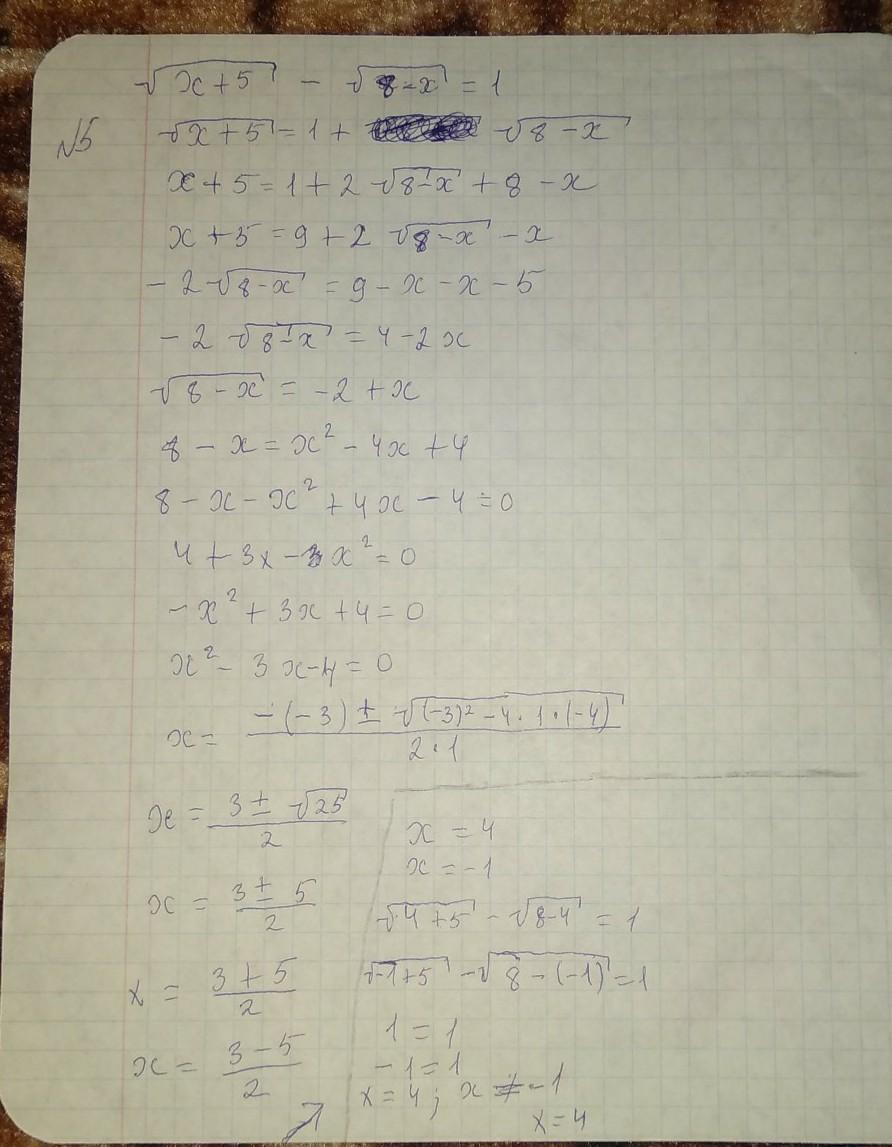 √(x+5) - √(8-x) = 1
√5
√(x+5) = 1 + √(8-x)
x+5 = 1+2 √(8-x) + 8 - x
x+5 = 9+2 √(8-x) - x
-2√(8-x) = 9-x-x-5
-2 √(8-x) = 4-2x
√(8-x) = -2+x
8-x = x²-4x+4
8-x-x²+4x-4=0
4+3x-x²=0
-x²+3x+4=0
x²-3x-4=0
x = (-(-3) ± √((-3)²-4·1·(-4))) / (2·1)
x = (3 ± √25) / 2
x = (3 ± 5) / 2
x = (3+5) / 2
x = (3-5) / 2
↗
x = 4
x = -1
√(4+5) - √(8-4) = 1
√(-1+5) - √(8-(-1)) = 1
1 = 1
-1 = 1
x = 4; x ≠ -1
x = 4